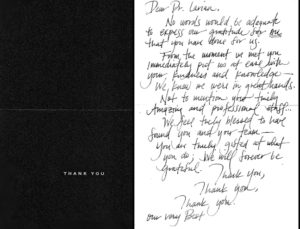 THANK YOU
Dear Dr. Larian,
No words would be adequate
to express our gratitude for
that you have done for us.
From the moment we met you
immediately put us at ease with
your kindness and knowledge —
We knew we were in great hands.
Not to mention your truly
amazing and professional staff...
We feel truly blessed to have
found you and your team —
You are truly gifted at what
you do. We will forever be
grateful.
Thank you,
Thank you,
Thank you.
our very Best